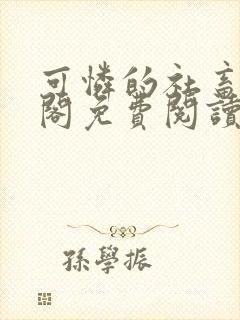 可憐的社畜
閣免費閱讀
孫學振